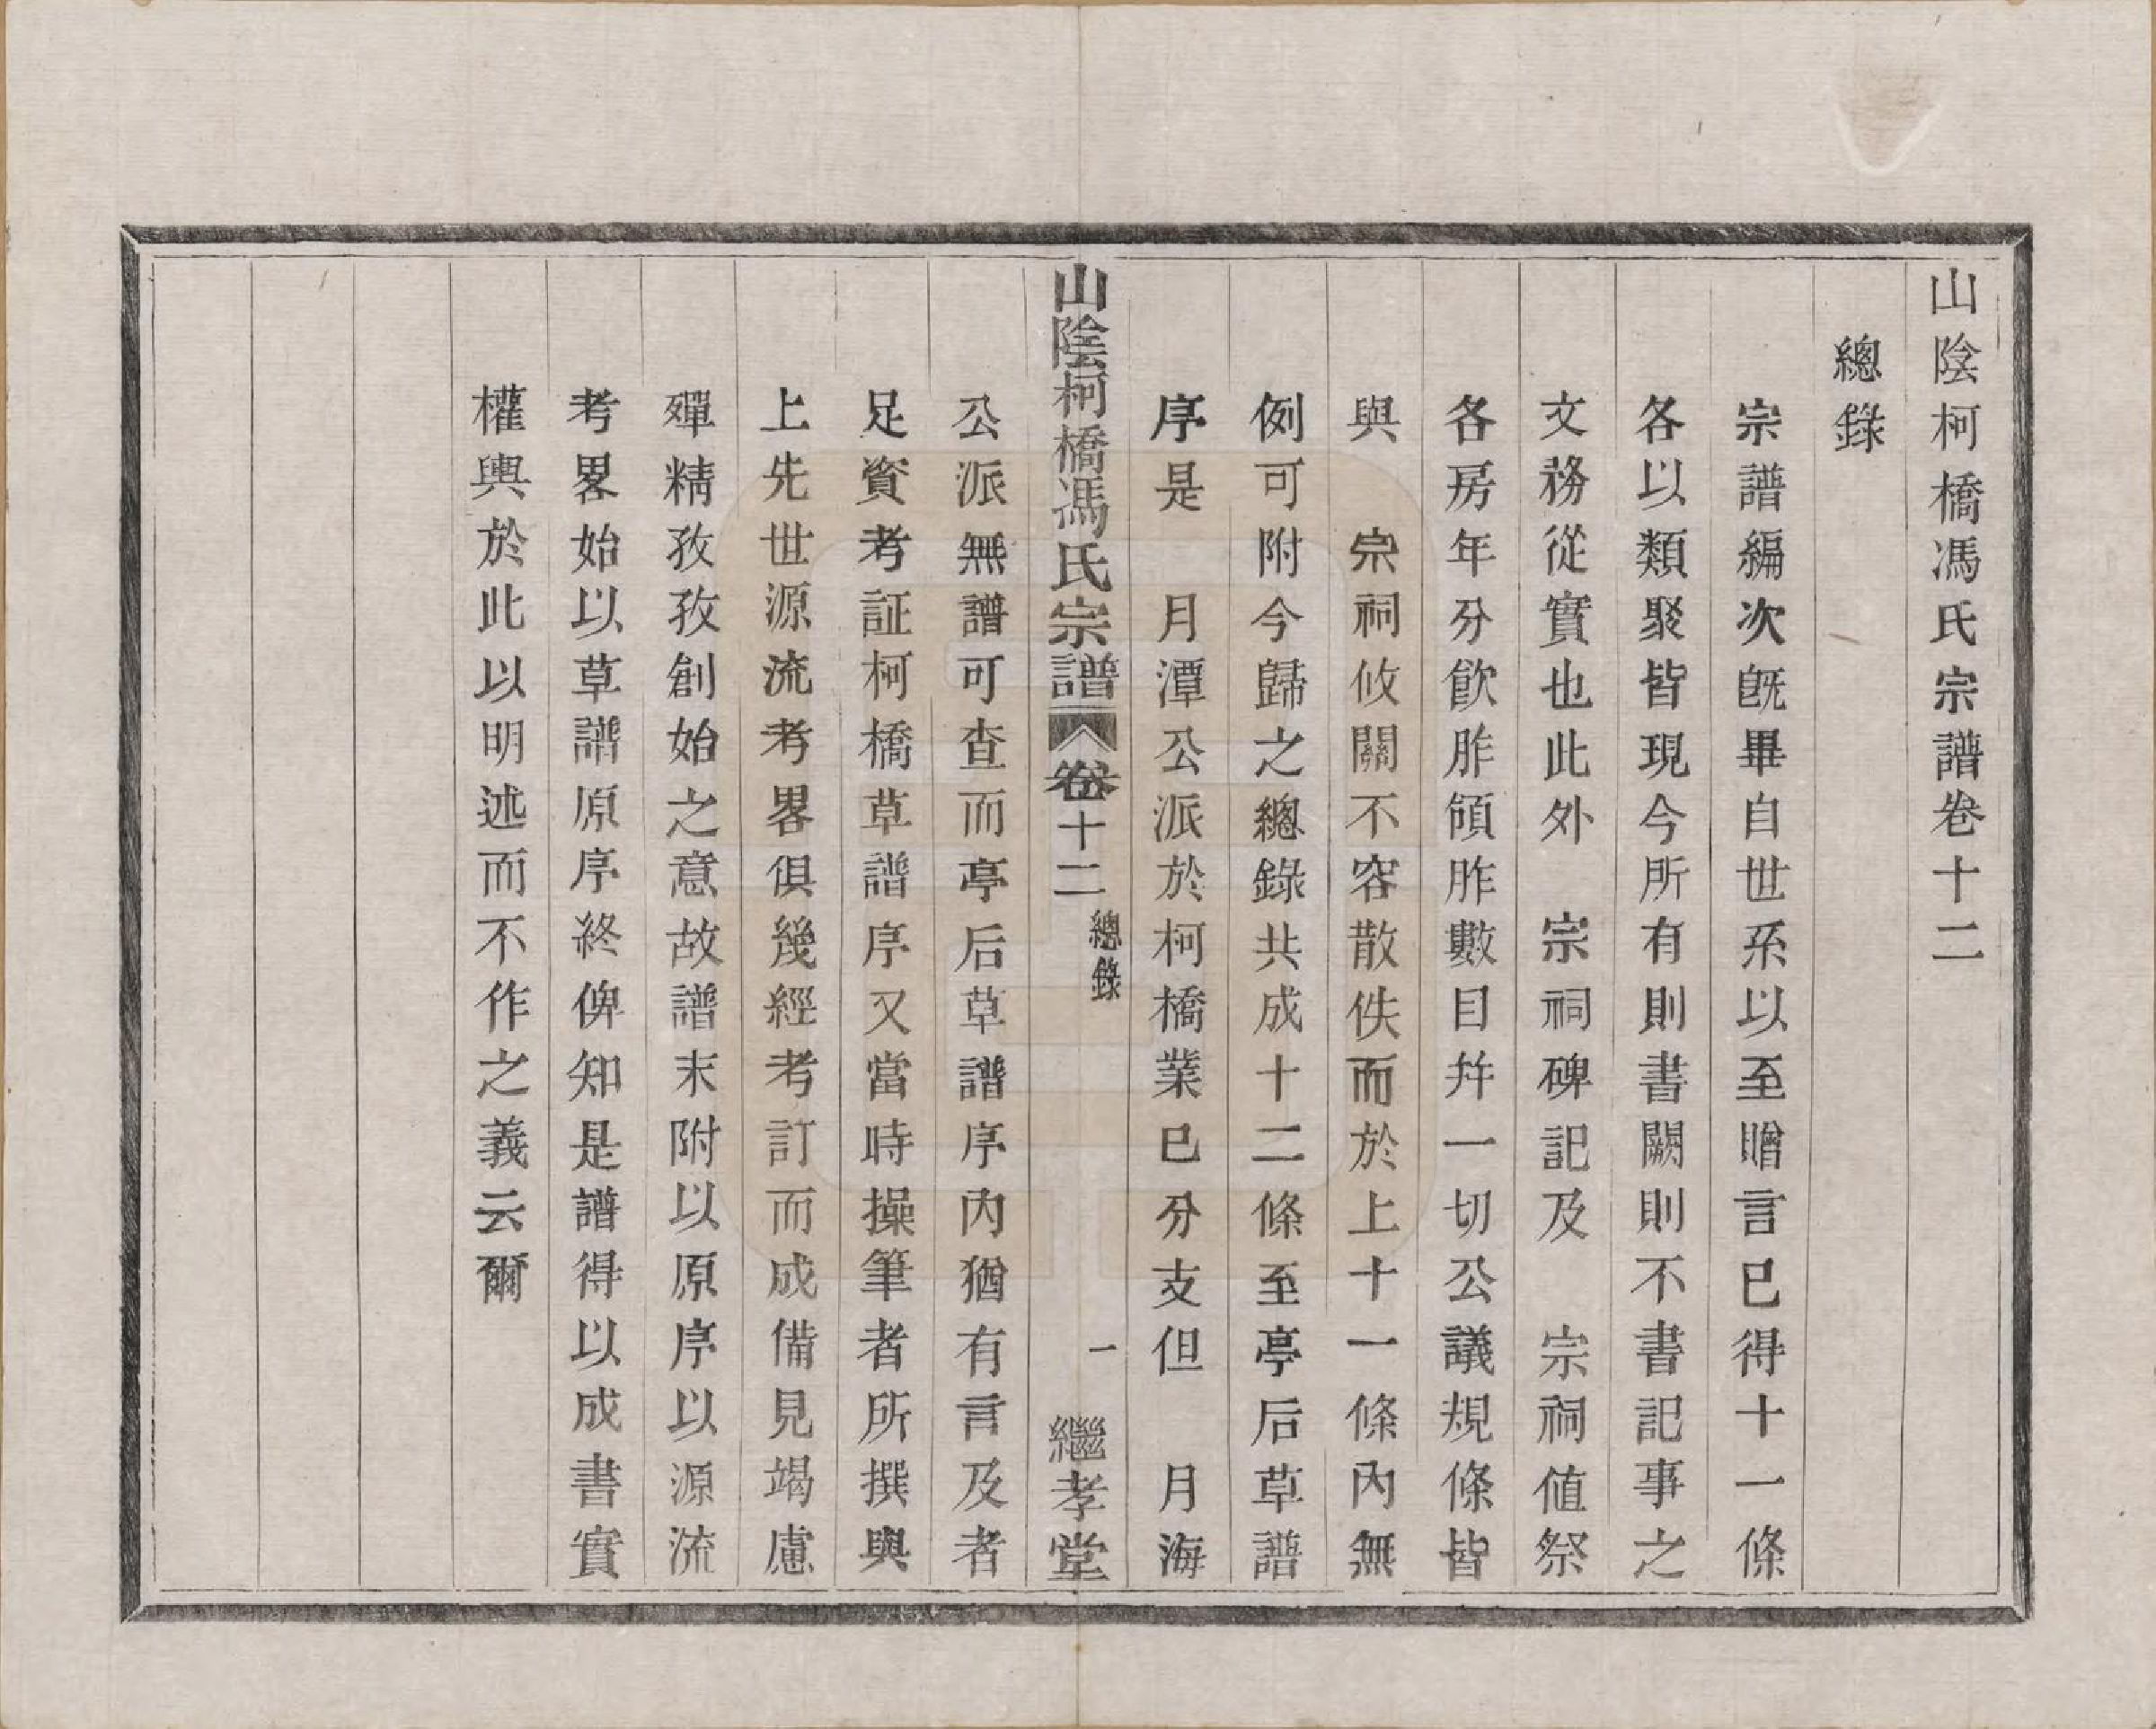 山陰柯橋馮氏宗譜卷十二
總錄
宗譜編次旣畢自世系以至贈言已得十一條
各以類聚皆現今所有則書闕則不書記事之
文務從實也此外　宗祠碑記及　宗祠值祭
各房年分飮胙頒胙數目幷一切公議規條皆
與　宗祠攸關不容散佚而於上十一條內無
例可附今歸之總錄共成十二條至亭后草譜
序是　月潭公派於柯橋業已分支但　月海
山陰柯橋馮氏宗譜　卷十二　總錄　一　繼孝堂
公派無譜可查而亭后草譜序內猶有言及者
足資考証柯橋草譜序又當時操筆者所撰與
上先世源流考畧俱幾經考訂而成備見竭慮
殫精孜孜創始之意故譜末附以原序以源流
考畧始以草譜原序終俾知是譜得以成書實
權輿於此以明述而不作之義云爾